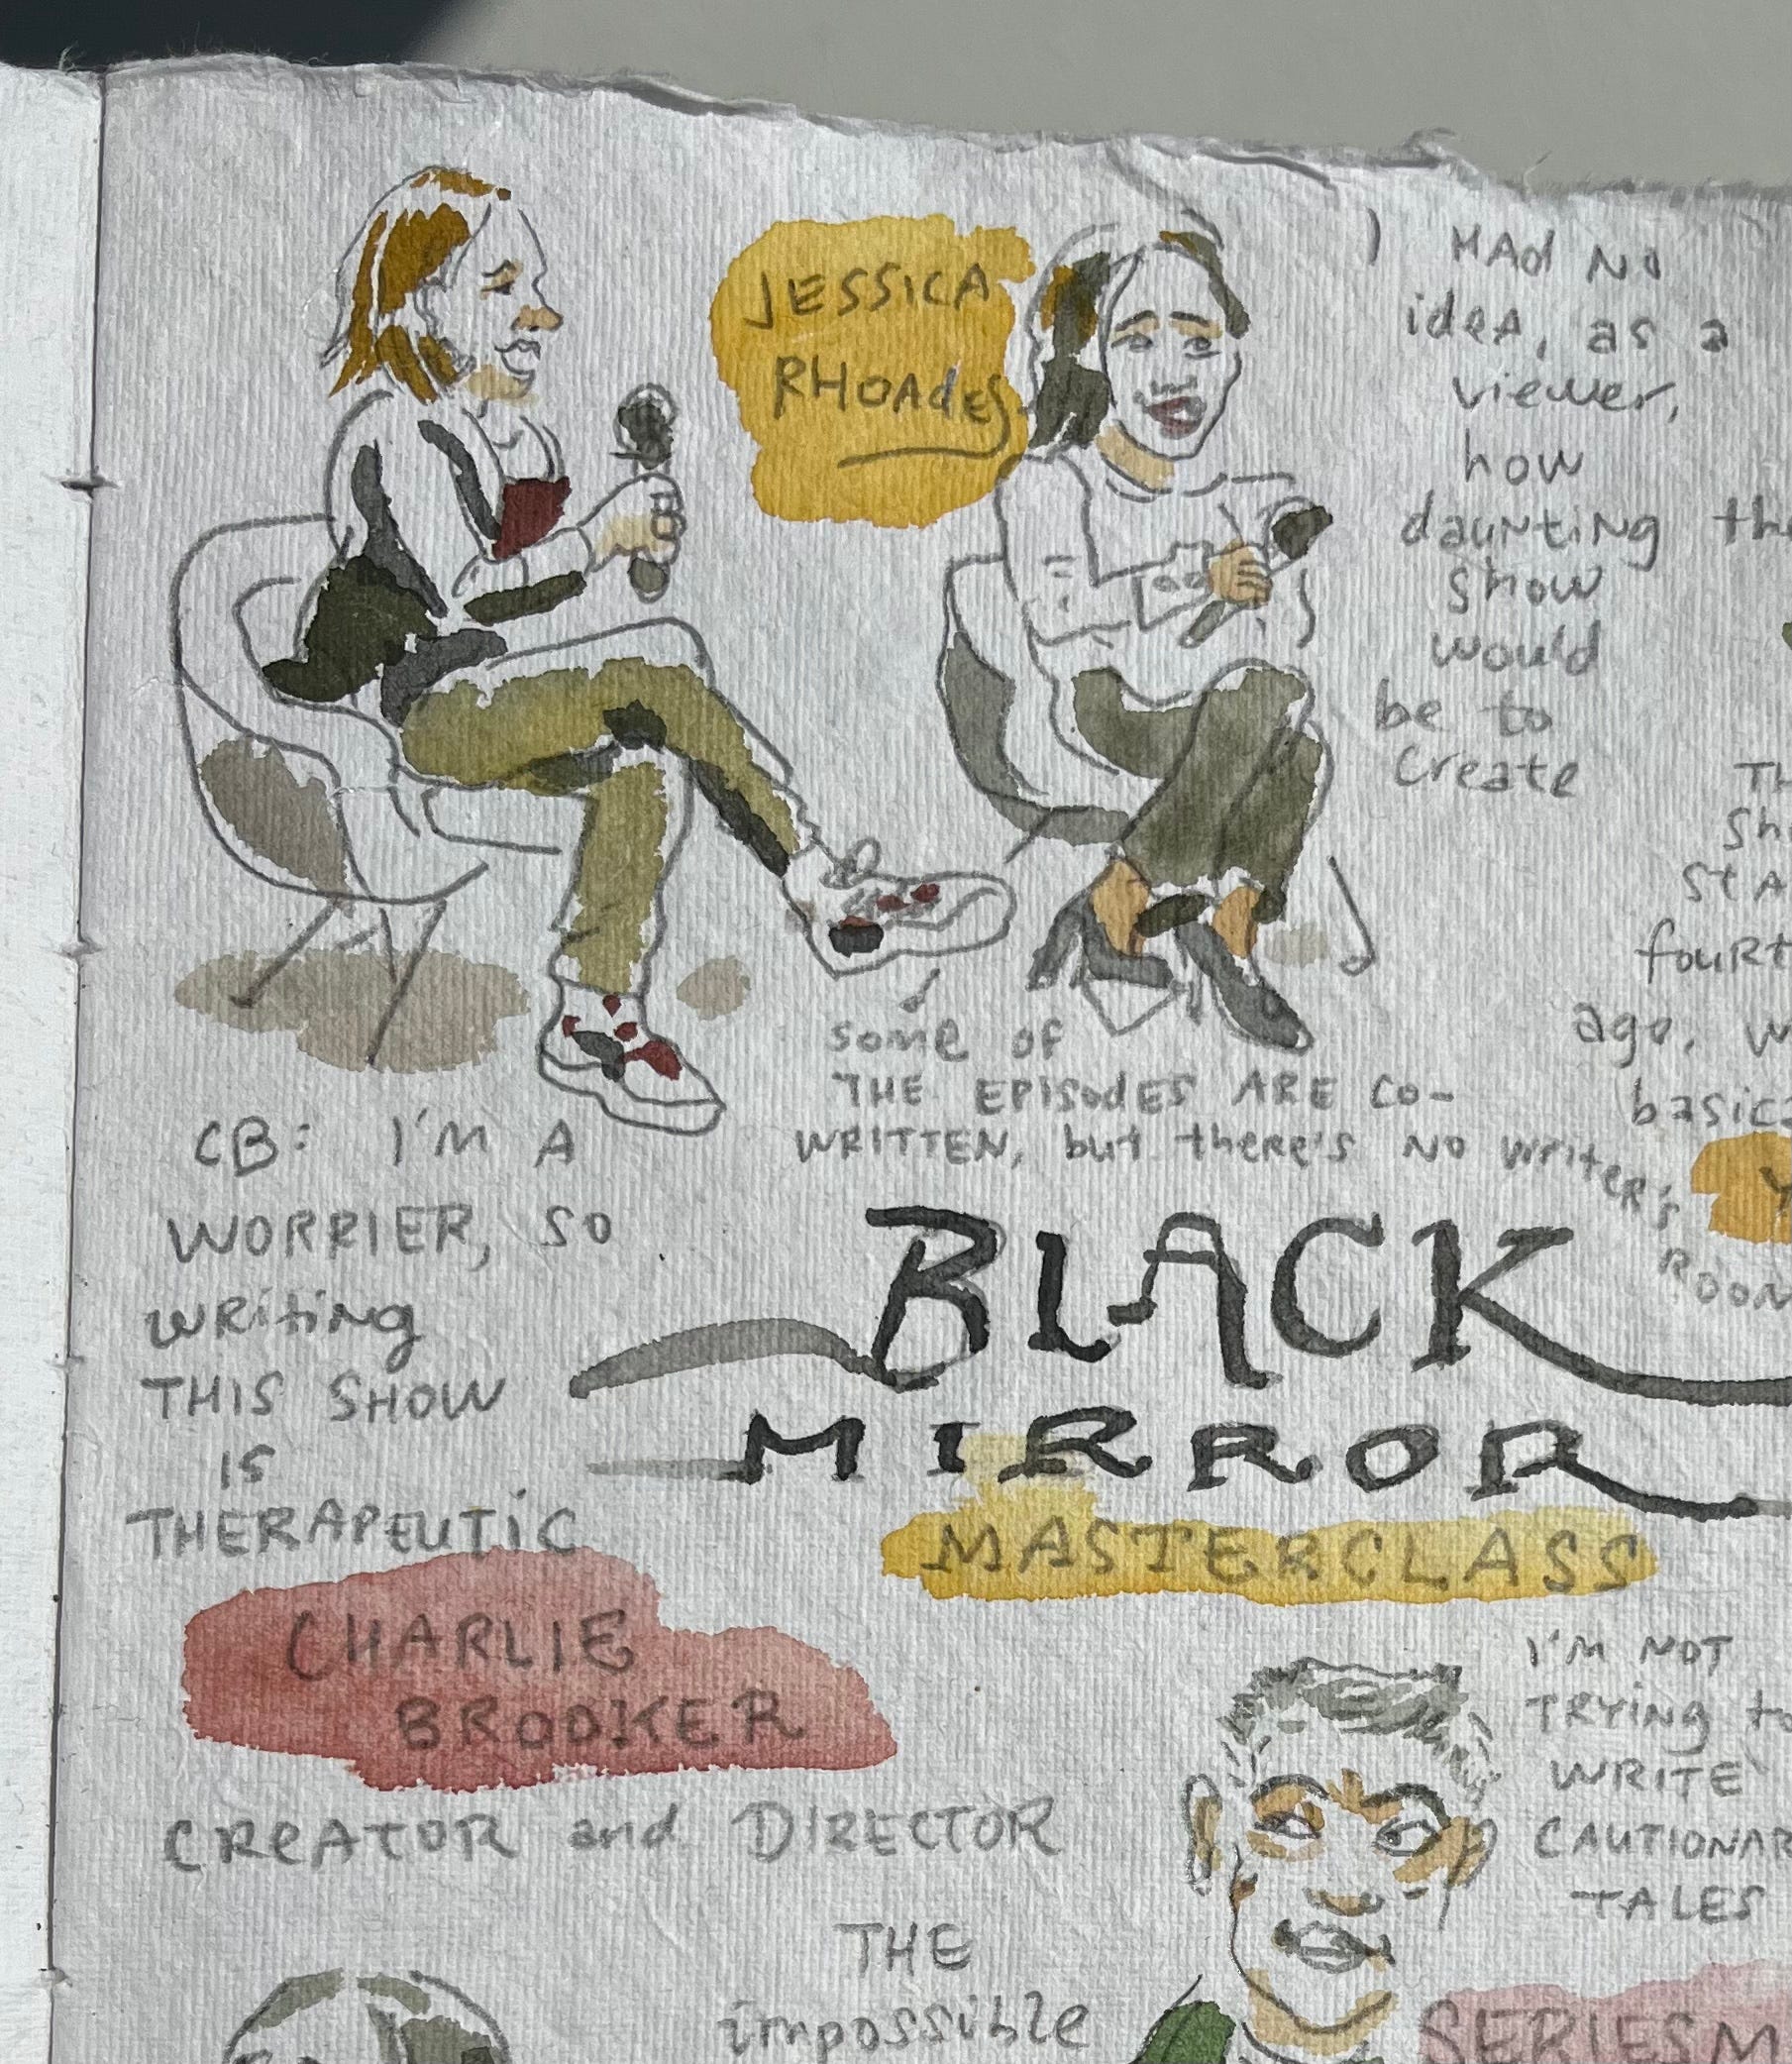 JESSICA
RHOAdES
I HAd NO
idEA, as a
viewer,
how
daunting
show
would
be to
create
fourt
age,
some of
THE EPISOdES ARE CO-
WRITTEN, but there's NO writer's
ROOM
CB: I'M A
WORRIER, SO
writing
THIS SHOW
IS
THERAPEUTiC
BLACK
MIRROR
MASTERCLASS
CHARLIE
BROOKER
CREATOR and DIRECTOR
I'M NOT
TRYING to
WRITE
CAUTIONAR
TALES
THE
impossible
SERIESM